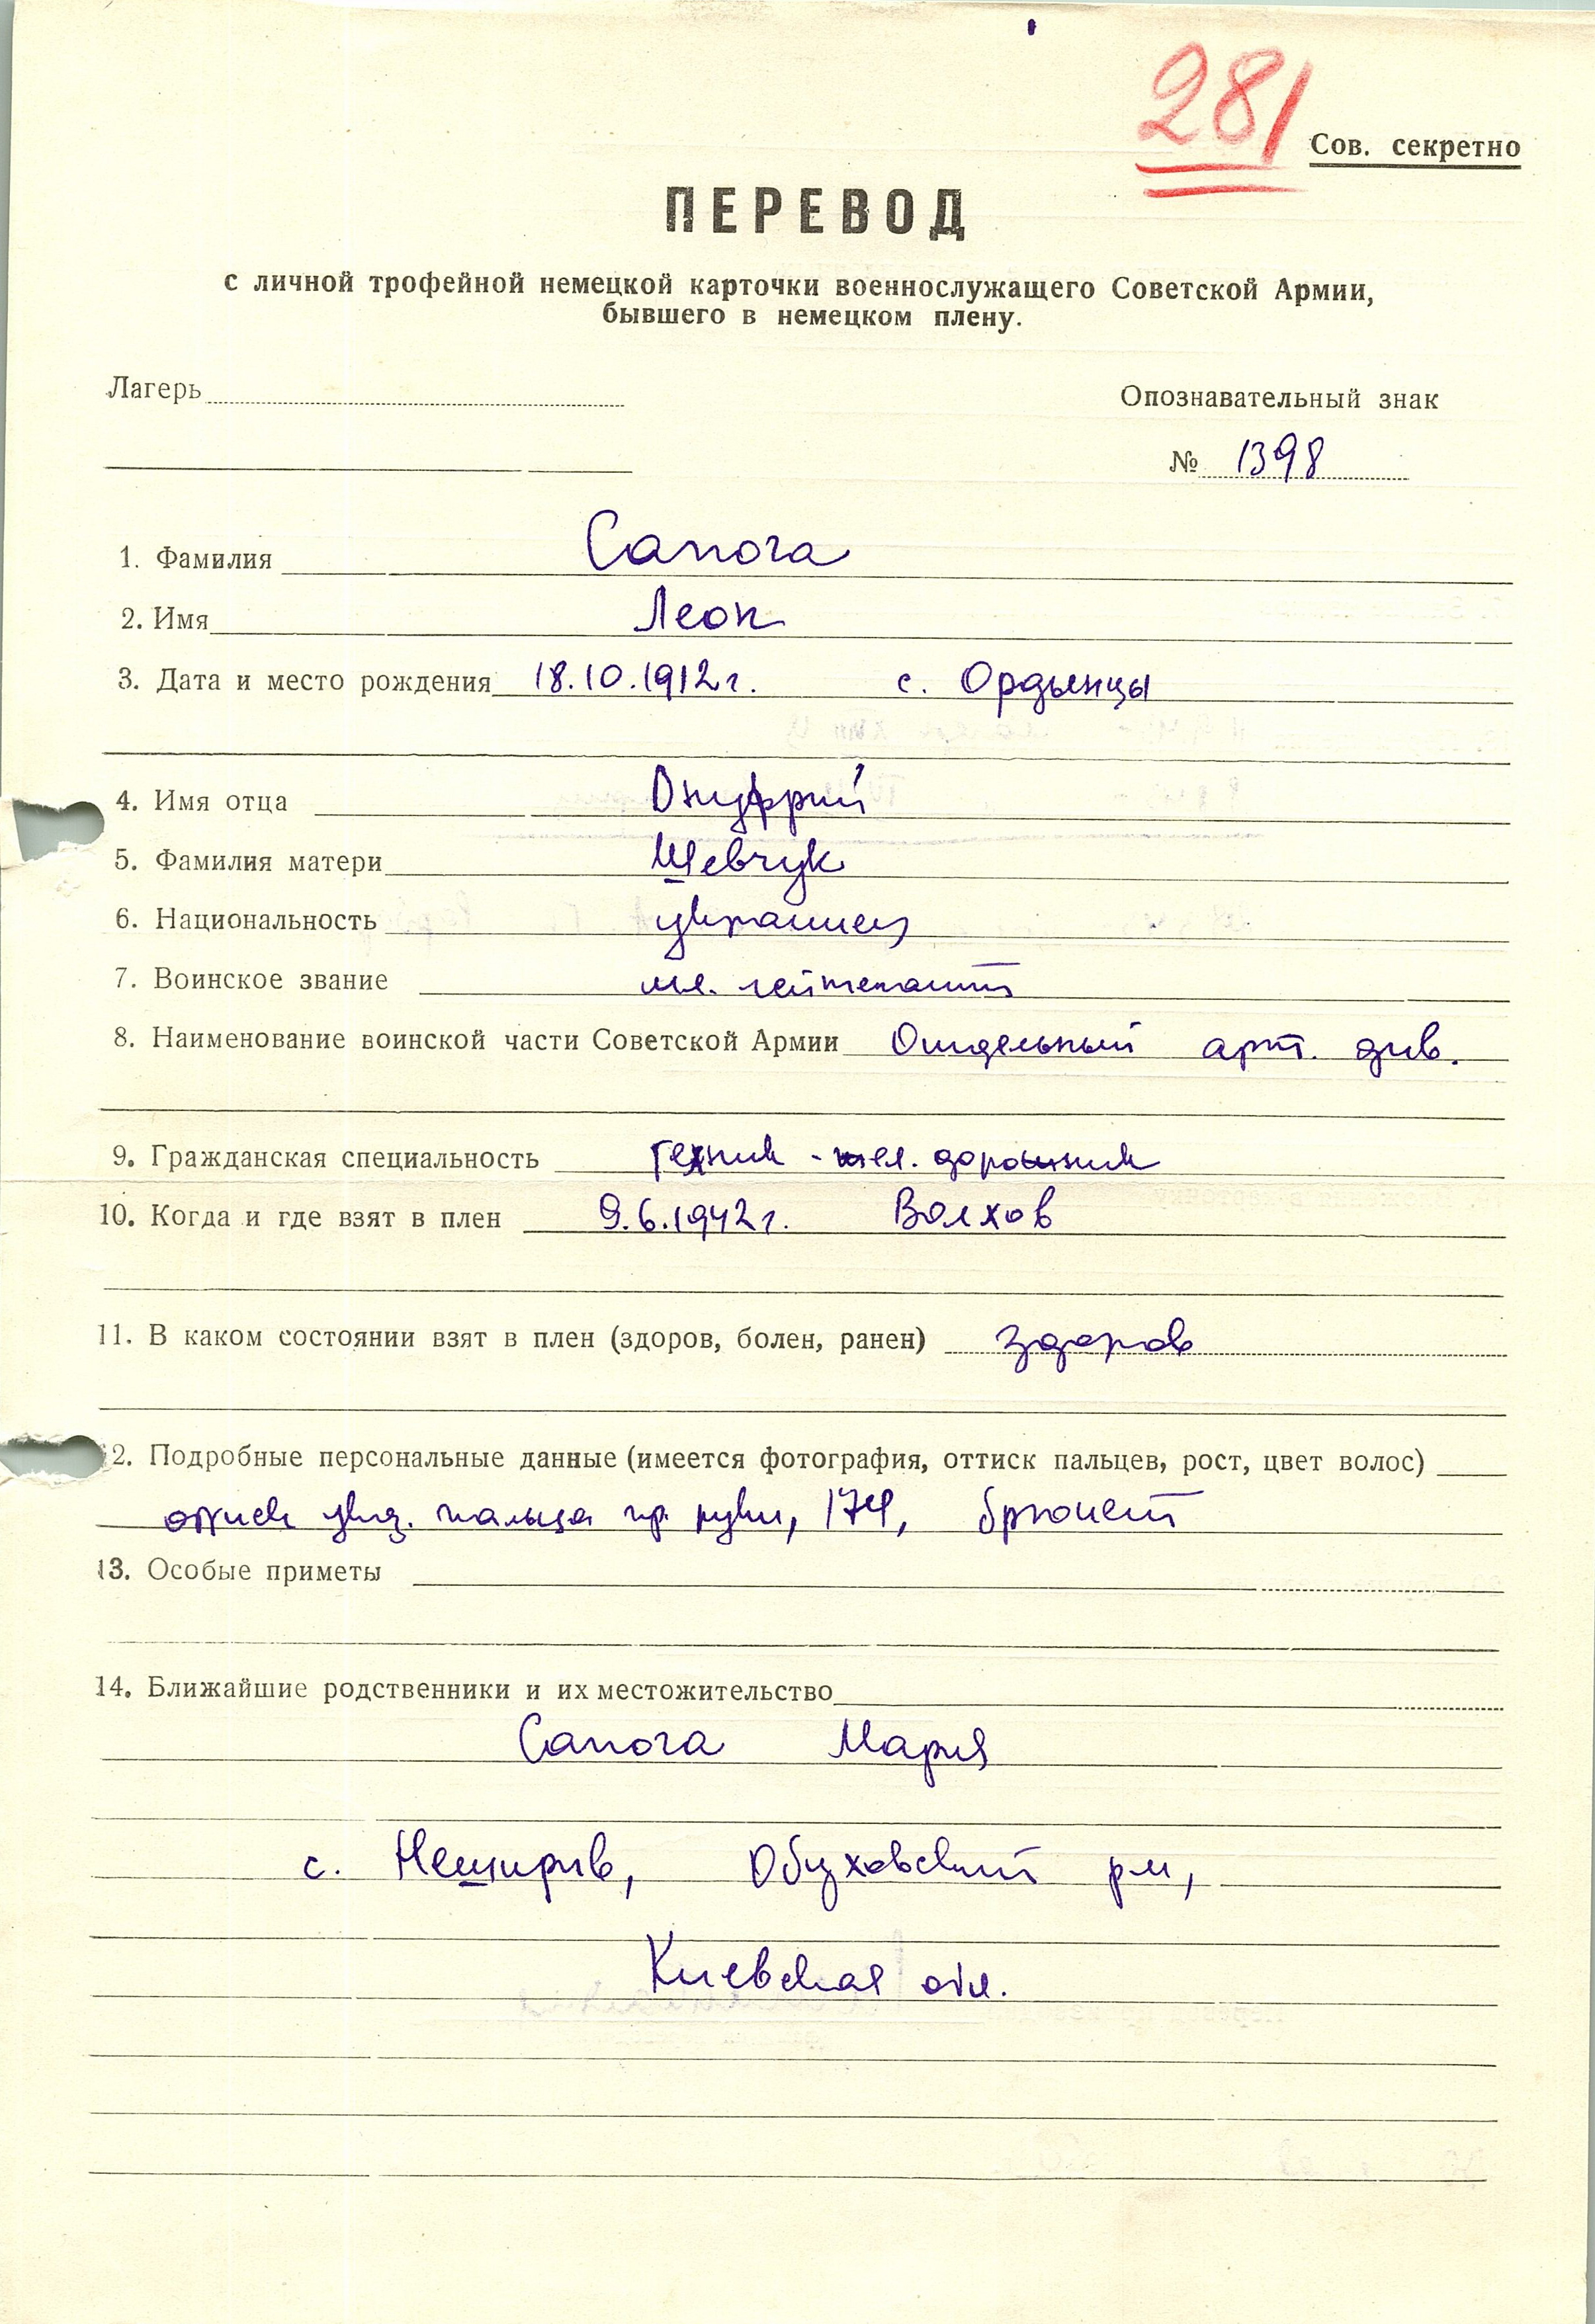 281
Сов. секретно
ПЕРЕВОД
с личной трофейной немецкой карточки военнослужащего Советской Армии,
бывшего в немецком плену.
Лагерь
Опознавательный знак
№ 1398
1. Фамилия Сапога
2. Имя Леон
3. Дата и место рождения 18.10.1912г. с. Ордынцы
4. Имя отца Онуфрий
5. Фамилия матери Шевчук
6. Национальность украинец
7. Воинское звание мл. лейтенант
8. Наименование воинской части Советской Армии Отдельный арт. див.
9. Гражданская специальность техник - жел. дорожник
10. Когда и где взят в плен 9.6.1942г. Волхов
11. В каком состоянии взят в плен (здоров, болен, ранен) здоров
2. Подробные персональные данные (имеется фотография, оттиск пальцев, рост, цвет волос)
оттиск указ. пальца пр. руки, 174, брюнет
13. Особые приметы
14. Ближайшие родственники и их местожительство
Сапога Мария
с. Нещирив, Обуховский рн,
Киевская обл.